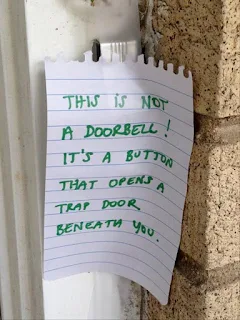 THIS IS NOT
A DOORBELL!
IT'S A BUTTON
THAT OPENS A
TRAP DOOR
BENEATH YOU.